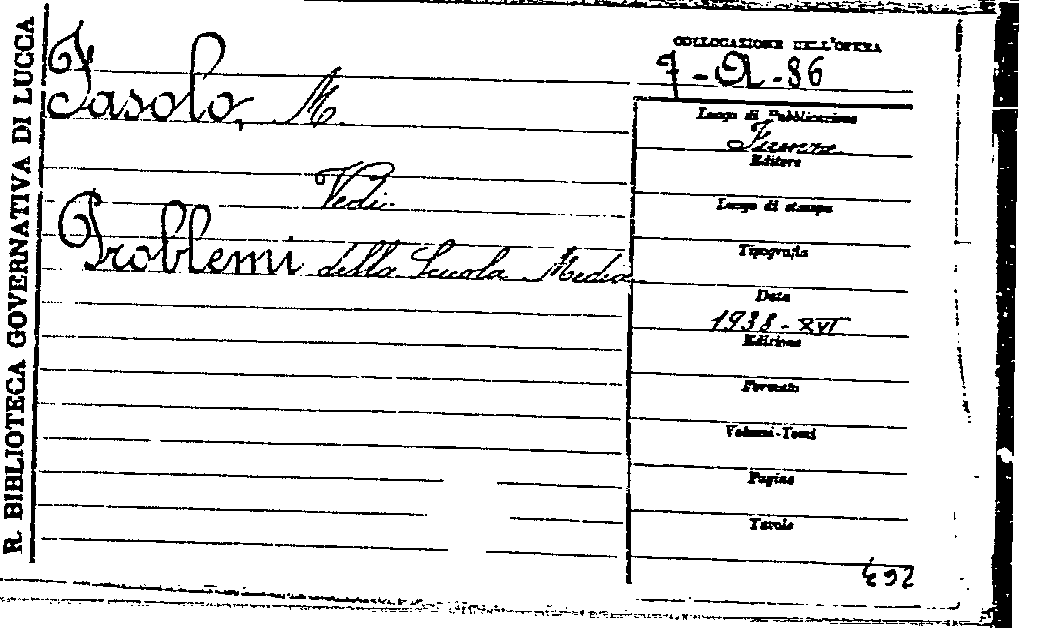 R. BIBLIOTECA GOVERNATIVA DI LUCCA
Fasolo, M.
Vedi
Problemi della Scuola Media
COLLOCAZIONE DELL'OPERA
7 - A - 86
Luogo di Pubblicazione
Firenze
Editore
Luogo di stampa
Tipografia
Data
1938 - XVI
Edizione
Formato
Volumi-Tomi
Pagine
Tavole